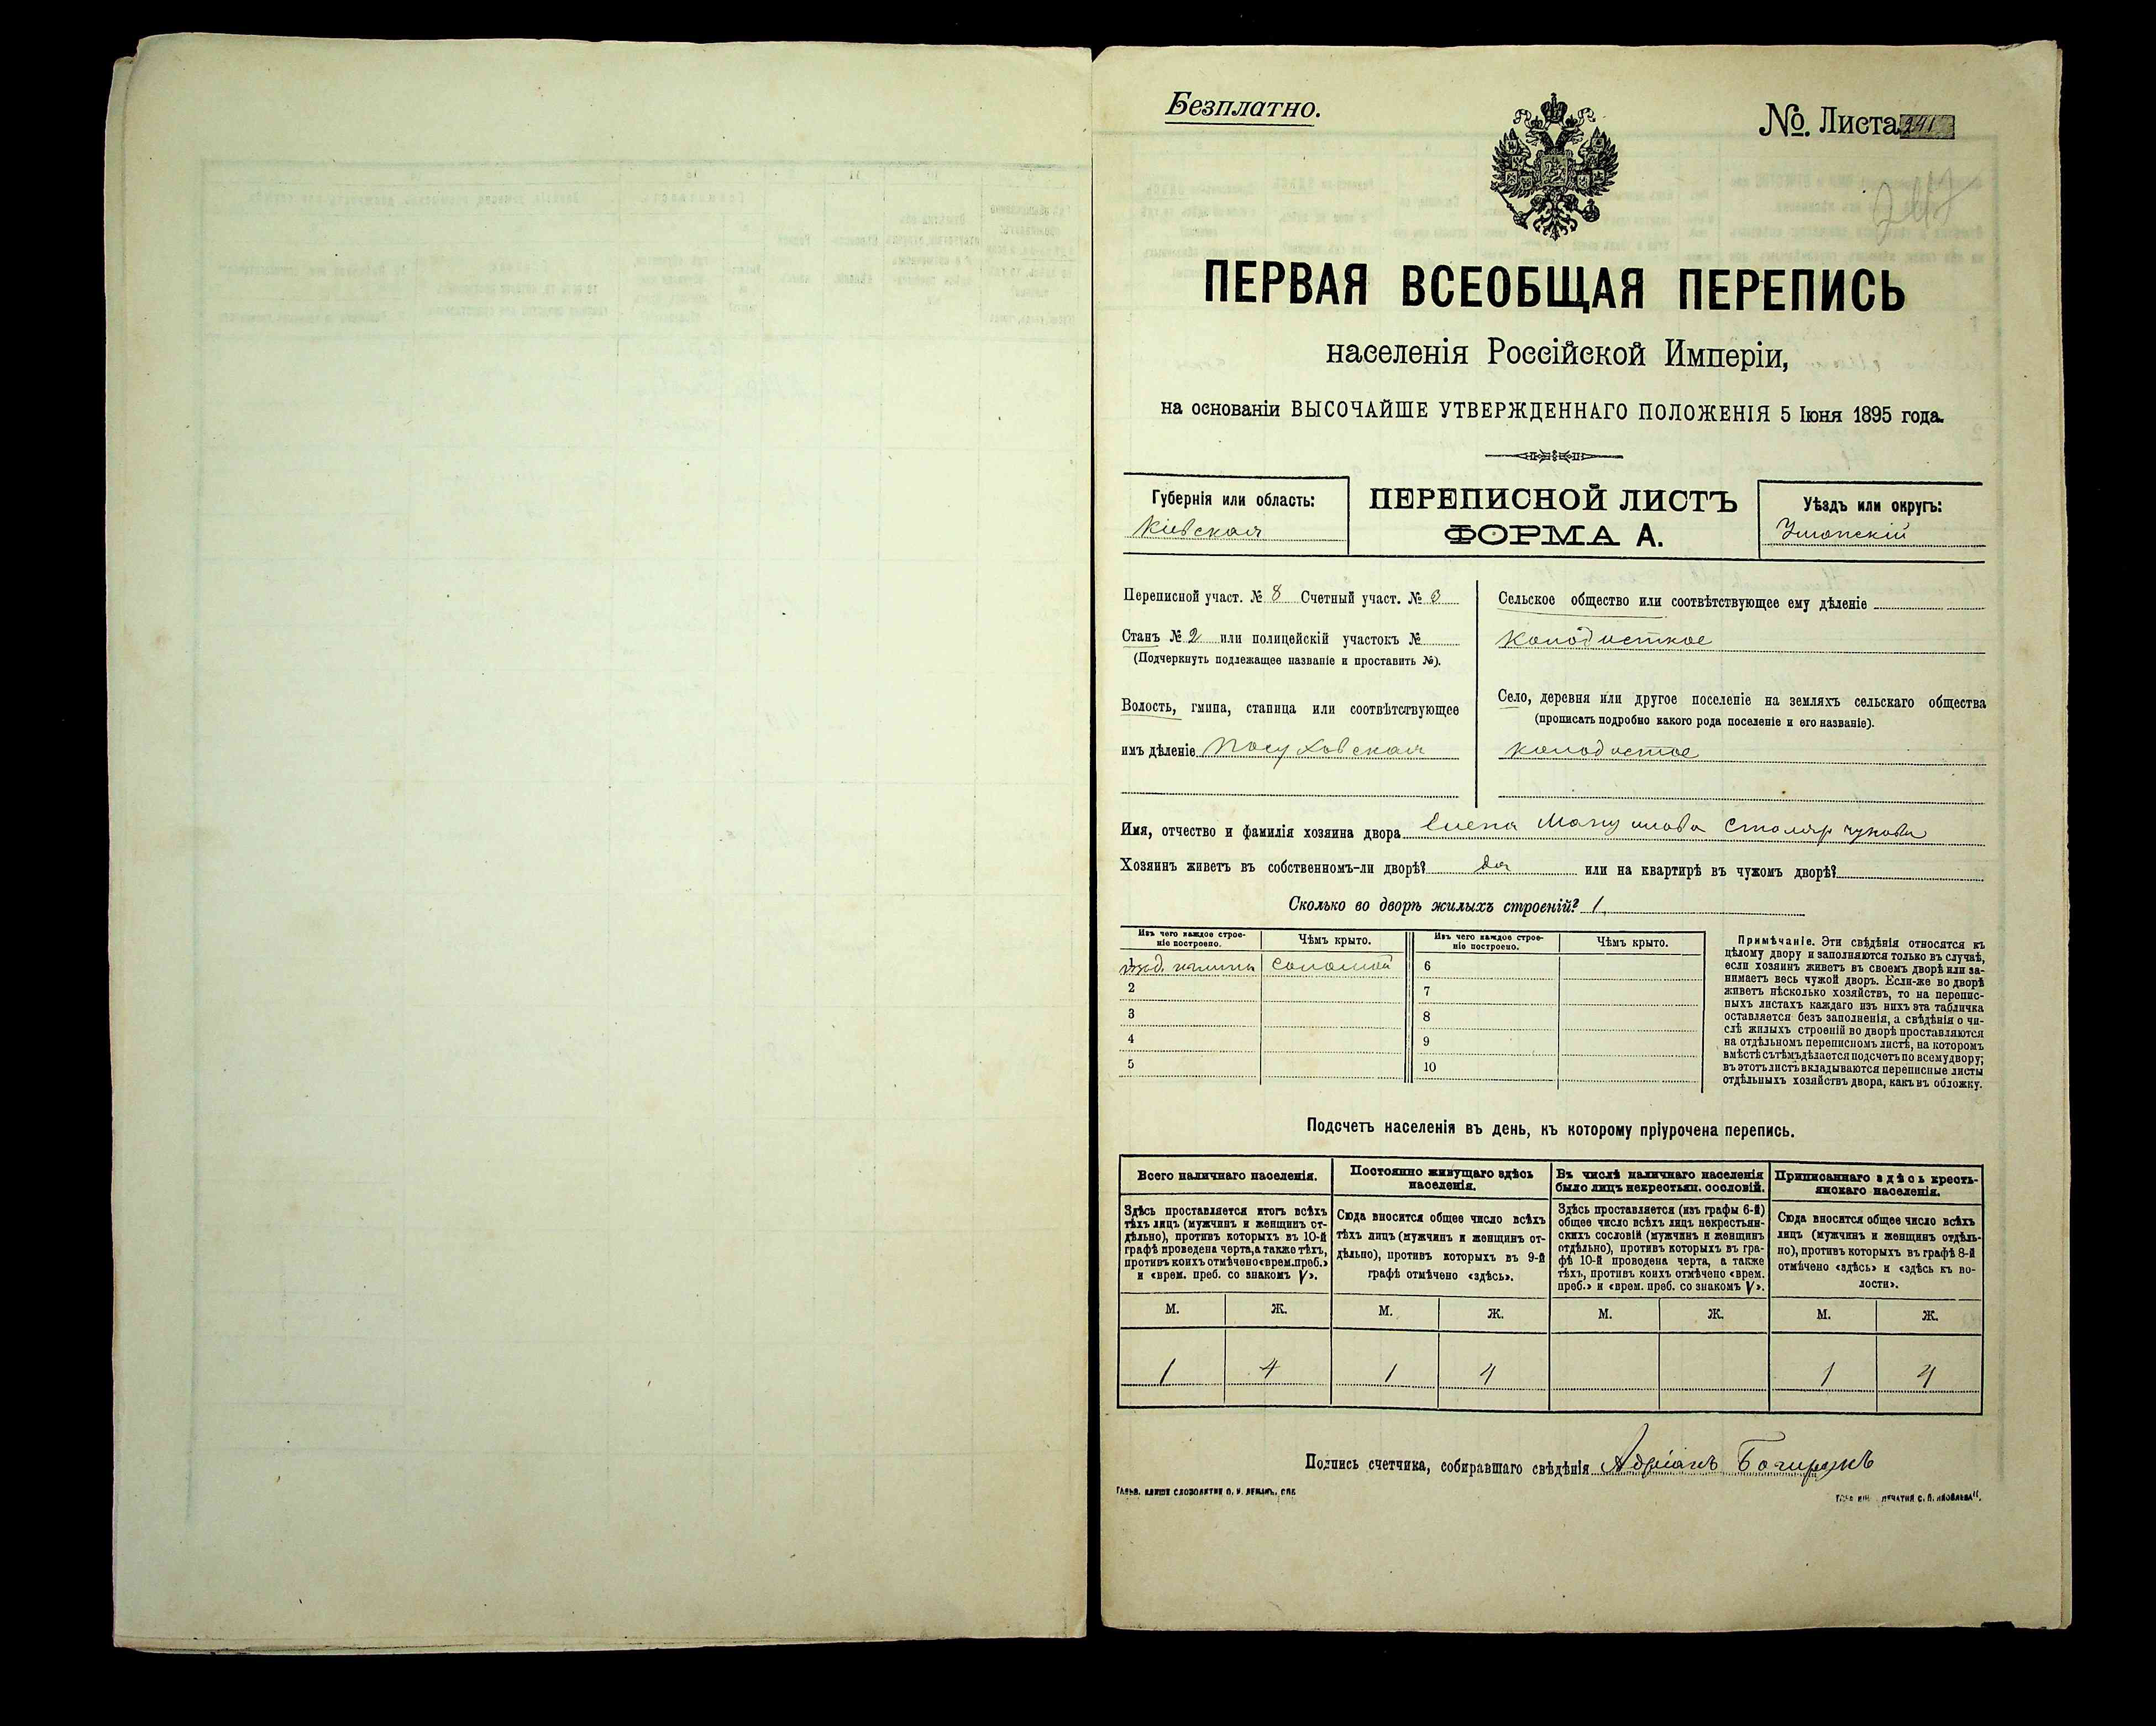 Безплатно.
№. Листа 241
ПЕРВАЯ ВСЕОБЩАЯ ПЕРЕПИСЬ
населенія Россійской Имперіи,
на основаніи ВЫСОЧАЙШЕ УТВЕРЖДЕННАГО ПОЛОЖЕНІЯ 5 Іюня 1895 года.
Губернія или область:
Кіевская
ПЕРЕПИСНОЙ ЛИСТЪ
ФОРМА А.
Уѣздъ или округъ:
Уманскій
Переписной участ. № 8 Счетный участ. № 3
Станъ № 2 или полицейскій участокъ №
(Подчеркнуть подлежащее названіе и проставить №).
Волость, гмина, станица или соотвѣтствующее
имъ дѣленіе Посуховская
Сельское общество или соотвѣтствующее ему дѣленіе
Колодисткое
Село, деревня или другое поселеніе на земляхъ сельскаго общества
(прописать подробно какого рода поселеніе и его названіе).
Колодистое
Имя, отчество и фамилія хозяина двора Елена Мануилова Столярчукова
Хозяинъ живетъ въ собственномъ-ли дворѣ? да или на квартирѣ въ чужомъ дворѣ?
Сколько во дворѣ жилыхъ строеній? 1
Изъ чего каждое строе-
ніе построено.
Чѣмъ крыто.
Изъ чего каждое строе-
ніе построено.
Чѣмъ крыто.
1 глины соломой
2
3
4
5
6
7
8
9
10
Примѣчаніе. Эти свѣдѣнія относятся къ
цѣлому двору и заполняются только въ случаѣ,
если хозяинъ живетъ въ своемъ дворѣ или за-
нимаетъ весь чужой дворъ. Если-же во дворѣ
живетъ нѣсколько хозяйствъ, то на перепис-
ныхъ листахъ каждаго изъ нихъ эта табличка
оставляется безъ заполненія, а свѣдѣнія о чи-
слѣ жилыхъ строеній во дворѣ проставляются
на отдѣльномъ переписномъ листѣ, на которомъ
вмѣстѣ съ тѣмъ дѣлается подсчетъ по всему двору;
въ этотъ листъ вкладываются переписные листы
отдѣльныхъ хозяйствъ двора, какъ въ обложку.
Подсчетъ населенія въ день, къ которому пріурочена перепись.
Всего наличнаго населенія.
Здѣсь проставляется итогъ всѣхъ
тѣхъ лицъ (мужчинъ и женщинъ от-
дѣльно), противъ которыхъ въ 10-й
графѣ проведена черта, а также тѣхъ,
противъ коихъ отмѣчено «врем. преб.»
и «врем. преб. со знакомъ V».
Постоянно живущаго здѣсь
населенія.
Сюда вносится общее число всѣхъ
тѣхъ лицъ (мужчинъ и женщинъ от-
дѣльно), противъ которыхъ въ 9-й
графѣ отмѣчено «здѣсь».
Въ числѣ наличнаго населенія
было лицъ некрестьян. сословій.
Здѣсь проставляется (изъ графы 6-й)
общее число всѣхъ лицъ некрестьян-
скихъ сословій (мужчинъ и женщинъ
отдѣльно), противъ которыхъ въ гра-
фѣ 10-й проведена черта, а также
тѣхъ, противъ коихъ отмѣчено «врем.
преб.» и «врем. преб. со знакомъ V».
Приписаннаго здѣсь кресть-
янскаго населенія.
Сюда вносится общее число всѣхъ
лицъ (мужчинъ и женщинъ отдѣль-
но), противъ которыхъ въ графѣ 8-й
отмѣчено «здѣсь» и «здѣсь къ во-
лости».
М. Ж. М. Ж. М. Ж. М. Ж.
1 4 1 4 1 4
Подпись счетчика, собиравшаго свѣдѣнія Адріанъ